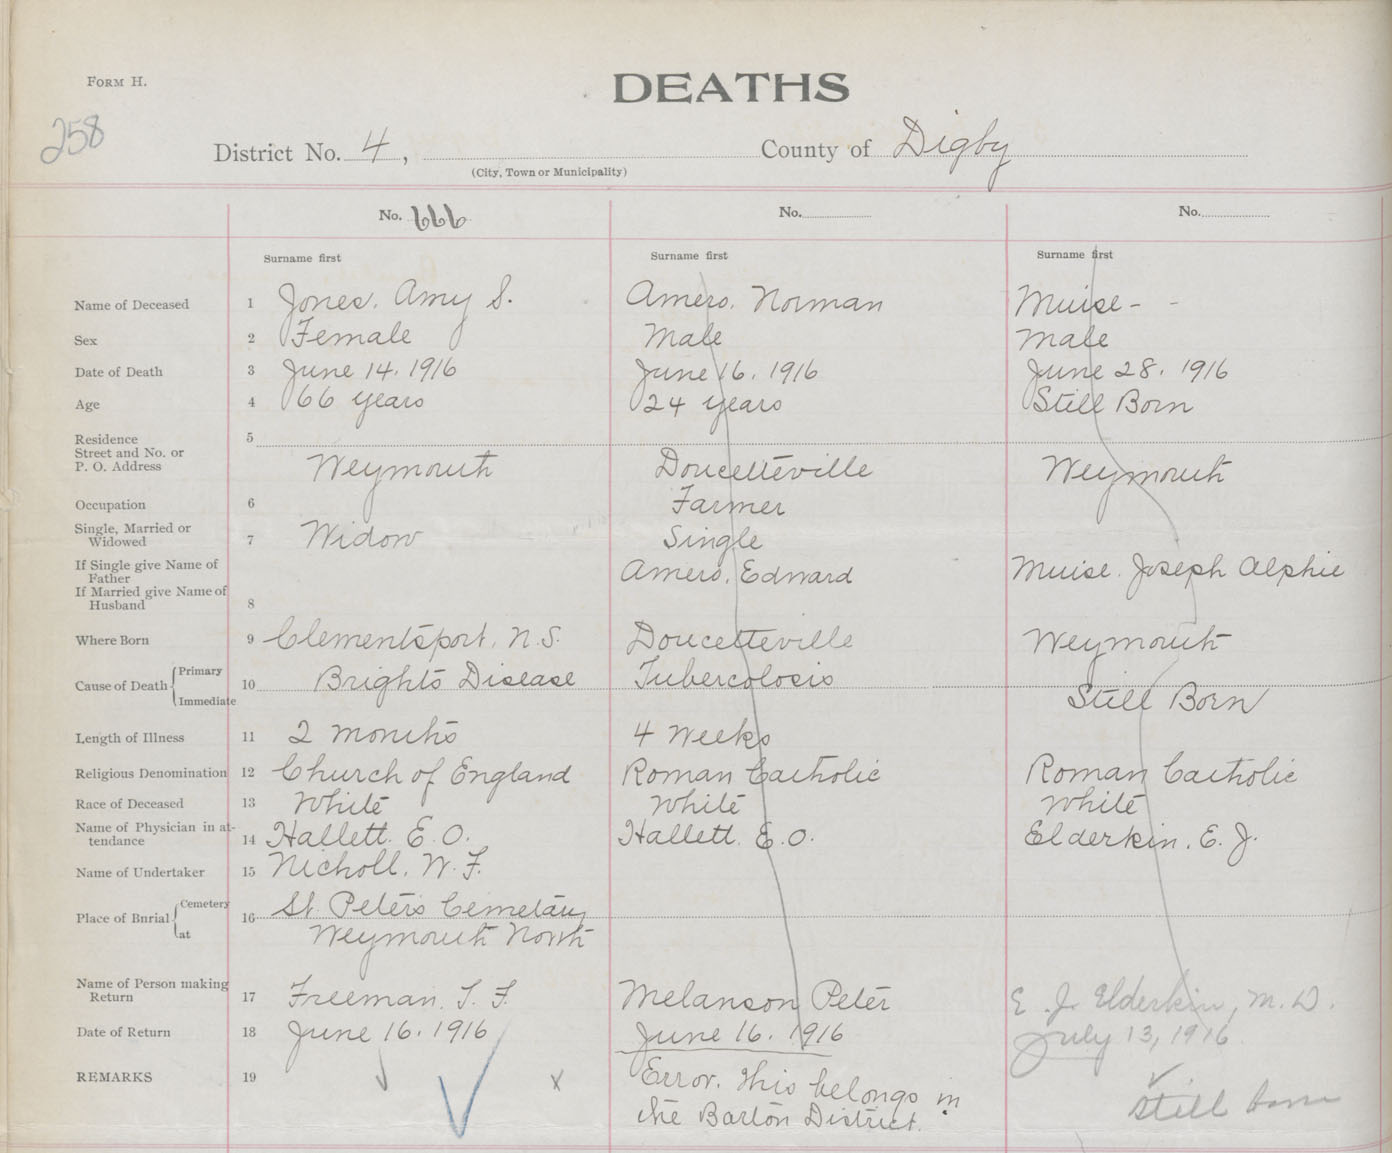 FORM H.
DEATHS
258
District No. 4,
County of Digby
(City, Town or Municipality)
No. 666
No.
No.
Surname first
Surname first
Surname first
Name of Deceased 1 Jones, Amy S. Amero, Norman Muise - -
Sex 2 Female Male Male
Date of Death 3 June 14, 1916 June 16, 1916 June 28, 1916
Age 4 66 years 24 years Still Born
Residence 5
Street and No. or
P. O. Address Weymouth Doucetteville Weymouth
Occupation 6 Farmer
Single, Married or
Widowed 7 Widow Single
If Single give Name of
Father Amero, Edward Muise. Joseph Alphie
If Married give Name of
Husband 8
Where Born 9 Clementsport, N.S. Doucetteville Weymouth
Cause of Death Primary
10 Brights Disease Tubercolosis
Immediate Still Born
Length of Illness 11 2 months 4 Weeks
Religious Denomination 12 Church of England Roman Catholic Roman Catholic
Race of Deceased 13 White White White
Name of Physician in at-
tendance 14 Hallett. E. O. Hallett. E. O. Elderkin, E. J.
Name of Undertaker 15 Nicholl, W. F.
Place of Burial Cemetery 16 St. Peters Cemetary
at Weymouth North
Name of Person making
Return 17 Freeman. T. F. Melanson Peter E. J. Elderkin, M. D.
Date of Return 18 June 16. 1916 June 16. 1916 July 13, 1916
REMARKS 19 x Error. this belongs in
the Barton District. Still born